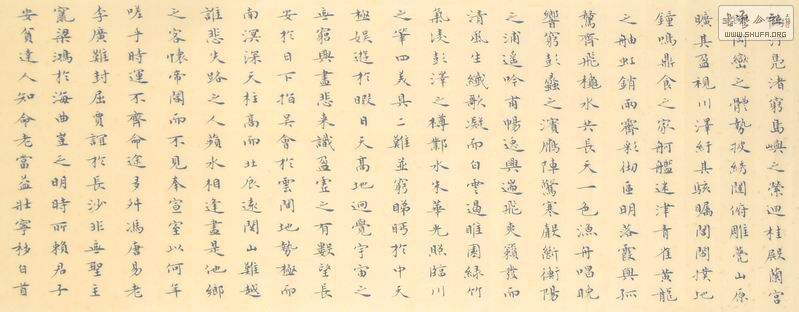 WWW.SHUFA.ORG
汀鳧渚窮島嶼之縈迴桂殿蘭宮
岡巒之體勢披綉闥俯雕甍山原
曠其盈視川澤紆其駭矚閭閻撲地
鐘鳴鼎食之家舸艦迷津青雀黃龍
之舳虹銷雨霽彩徹區明落霞與孤
鶩齊飛秋水共長天一色漁舟唱晚
響窮彭蠡之濱雁陣驚寒聲斷衡陽
之浦遙吟甫暢逸興遄飛爽籟發而
清風生纖歌凝而白雲遏睢園綠竹
氣凌彭澤之樽鄴水朱華光照臨川
之筆四美具二難並窮睇眄於中天
極娛遊於暇日天高地迥覺宇宙之
無窮興盡悲來識盈虛之有數望長
安於日下指吳會於雲間地勢極而
南溟深天柱高而北辰遠關山難越
誰悲失路之人蘋水相逢盡是他鄉
之客懷帝閽而不見奉宣室以何年
嗟乎時運不齊命途多舛馮唐易老
李廣難封屈賈誼於長沙非無聖主
竄梁鴻於海曲豈乏明時所賴君子
安貧達人知命老當益壯寧移白首